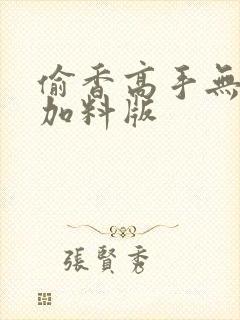 偷香高手無
加料版
張賢秀